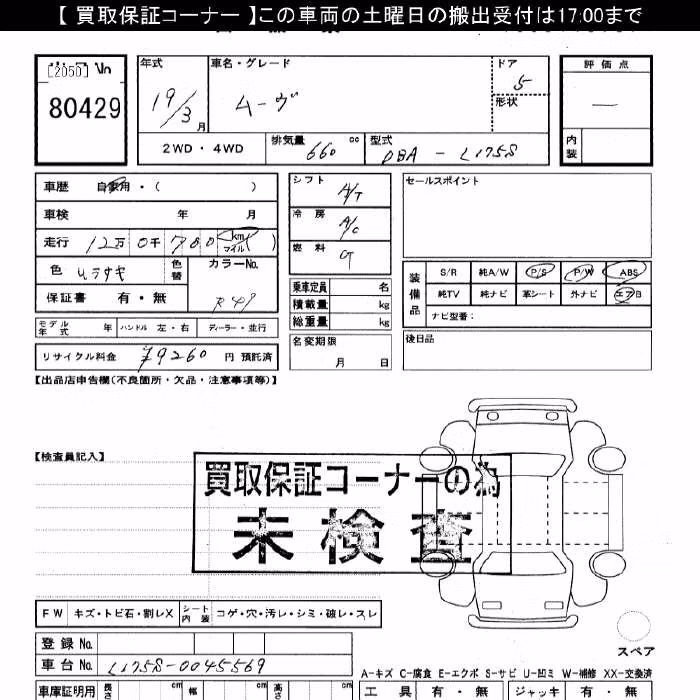 【 買取保証コーナー 】この車両の土曜日の搬出受付は17:00まで
[2050] No
80429
年式
19/3 月
車名・グレード
ムーヴ
ドア
5
形状
評価点
—
内装
2WD・4WD
排気量 660 cc
型式 DBA - L175S
車歴 自家用・( )
車検 年 月
走行 12万 0千 780 km マイル ( )
色 ムラサキ
色替
カラーNo.
保証書 有・無
モデル年式 年 ハンドル 左・右 ディーラー・並行
リサイクル料金 ¥9260 円 預託済
シフト A/T
冷房 A/C
燃料
乗車定員 名
積載量 kg
総重量 kg
名変期限
月 日
セールスポイント
装備品
S/R 純A/W P/S P/W ABS
純TV 純ナビ 革シート 外ナビ エアB
ナビ型番:
後日品
【出品店申告欄(不良箇所・欠品・注意事項等)】
【検査員記入】
買取保証コーナーの為
未検査
FW キズ・トビ石・割レX シート内装 コゲ・穴・汚レ・シミ・破レ・スレ
登録 No.
車台 No. L175S-0045569
スペア
A-キズ C-腐食 E-エクボ S-サビ U-凹ミ W-補修 XX-交換済
車庫証明用 長さ cm 幅 cm 高さ cm
工具 有・無 ジャッキ 有・無